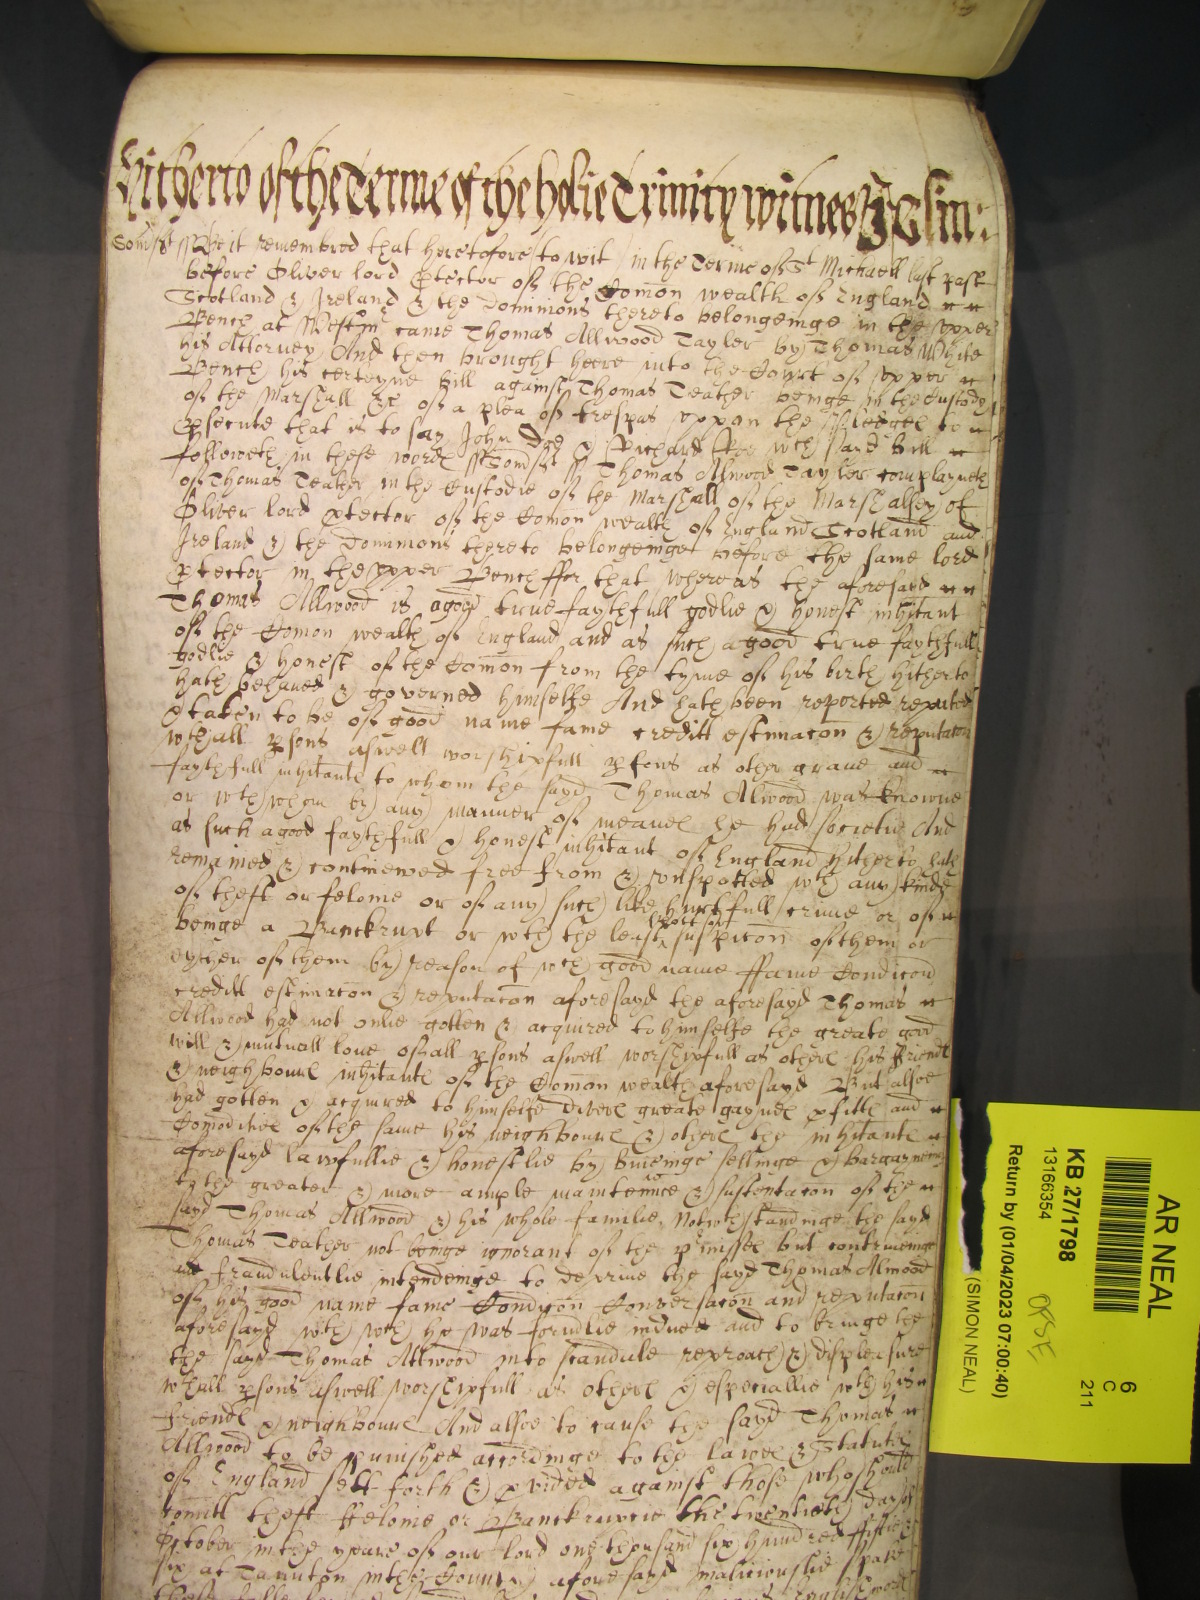 Hitherto of the Terme of the holie Trinity witnes Jo Glin:
Somst ss Be it remembred that heretofore to wit in the Terme of St Michaell last past
before Oliver lord Ptector of the Comon wealth of England
Scotland & Ireland & the Dominions thereto belongeinge in the upper
Bench at Westmr came Thomas Allwood Tayler by Thomas White
his Attorney And then brought heere into the Court of upper
Bench his certeyne bill against Thomas Teather beinge in the custody
of the Marshall &c of a plea of trespas uppon the Case pledges to
psecute that is to say John Doe & Richard Roe wch said bill
followeth in these words ss Somst ss Thomas Allwood Tayler complayneth
of Thomas Teather in the Custodie of the Marshall of the Marshalsey of
Oliver lord ptector of the Comon wealth of England Scotland and
Ireland & the Dominions thereto belongeinge before the same lord
ptector in the upper Bench ffor that whereas the aforesaid
Thomas Allwood is a good true faythfull godlie & honest inhitant
of the Comon wealth of England and as such a good true faythfull
godlie & honest of the Comon from the tyme of his birth hitherto
hath behaved & governed himselfe And hath been reported reputed
& taken to be of good name fame creditt estimacon & reputacon
wth all psons aswell worshipfull psons as other grave and
faythfull inhitants to whom the sayd Thomas Alwood was knowne
or wth whom by any manner of meanes he had societie And
as such a good faythfull & honest inhitant of England hitherto hath
remained & continewed free from & unspotted wth any kinde
of theft or felonie or of any such like hurtfull crime or of
beinge a Banckrupt or wth the least suspicon of them or
eyther of them by reason of wch good name ffame Condicon
creditt estimacon & reputacon aforesayd the aforesayd Thomas
Allwood had not onlie gotten & acquired to himselfe the greate good
will & mutuall love of all psons aswell worshipfull as others his friends
& neighbours inhitants of the Comon wealth aforesayd But alsoe
had gotten & acquired to himselfe divers greate gaynes pfitts and
Comodities of the same his neighbours & others the inhitants
aforesayd lawfullie & honestlie by buieinge sellinge & bargayneinge
to the greater & more ample maintennce & sustentacon of the
sayd Thomas Allwood & his whole familie. Notwthstandinge the sayd
Thomas Teather not beinge ignorant of the pmisses but contriveinge
and fraudulentlie intendeinge to deprive the sayd Thomas Alwood
of his good name fame Condicon Conversacon and reputacon
aforesayd wth wch he was formlie indued and to bringe the
the sayd Thomas Allwood into scandule reproach & displeasure
wth all psons aswell worshipfull as others & especiallie wth his
friends & neighbours And alsoe to cause the sayd Thomas
Allwood to be punished accordinge to the lawes & Statuts
of England sett forth & pvided against those who should
comitt theft ffelonie or Banckruptcie the twentieth day of
October in the yeare of our lord one thousand six hundred fiftie &
six at Taunton in the County aforesayd maliciouslie spake
AR NEAL
6
C
211
KB 27/1798
13166354
Return by (01/04/2023 07:00:40)
(SIMON NEAL)